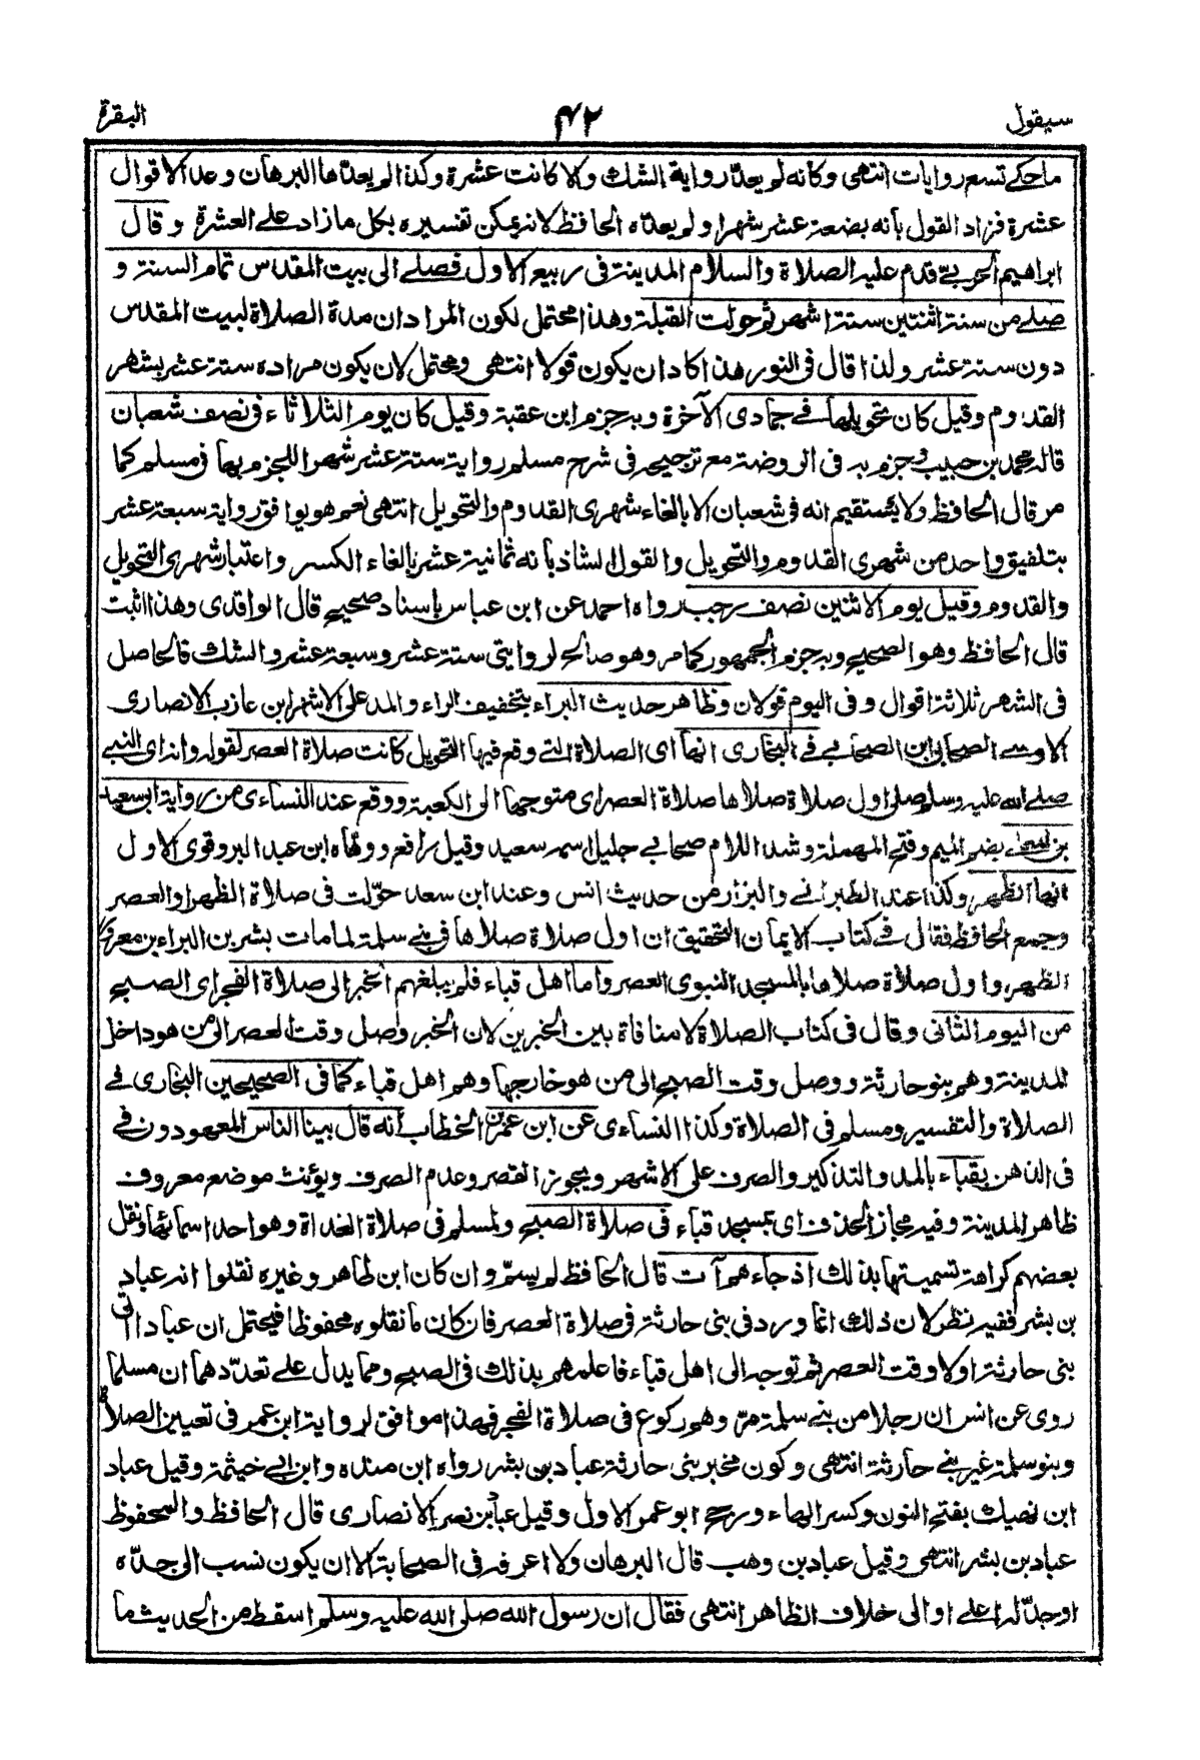 سيقول
٤٢
البقرة
ما حكى تسع روايات انتهى وكأنه لم يعد رواية الشك والا كانت عشرة وكذا لم يعدها البرهان وعد الاقوال
عشرة فزاد القول بأنه بضعة عشر شهرا ولم يعده الحافظ لانه يمكن تفسيره بكل ما زاد على العشرة وقال
ابراهيم الحربي قدم عليه الصلاة والسلام المدينة فى ربيع الاول فصلى الى بيت المقدس تمام السنة و
صلى من سنة اثنتين ستة اشهر ثم حولت القبلة وهذا محتمل لكون المراد ان مدة الصلاة لبيت المقدس
دون ستة عشر ولذا قال فى النور هذا كاد ان يكون قولا انتهى ومحتمل لان يكون مراده ستة عشر بشهر
القدوم وقيل كان تحويلها فى جمادى الآخرة وبه جزم ابن عقبة وقيل كان يوم الثلاثاء فى نصف شعبان
قاله محمد بن حبيب وجزم به فى الروضة مع ترجيحه فى شرح مسلم رواية ستة عشر شهرا للجزم بها فى مسلم كما
مر قال الحافظ ولا يستقيم انه فى شعبان الا بالغاء شهرى القدوم والتحويل انتهى نعم هو يوافق رواية سبعة عشر
بتلفيق واحد من شهرى القدوم والتحويل والقول الشاذ بأنه ثمانية عشر بالغاء الكسر واعتبار شهرى التحويل
والقدوم وقيل يوم الاثنين نصف رجب رواه احمد عن ابن عباس باسناد صحيح قال الواقدى وهذا اثبت
قال الحافظ وهو الصحيح وبه جزم الجمهور كما مر وهو صالح لروايتى ستة عشر وسبعة عشر والشك فالحاصل
فى الشهر ثلاثة اقوال وفى اليوم قولان وظاهر حديث البراء بتخفيف الراء والمد على الاشهر ابن عازب الانصارى
الاوسى الصحابى ابن الصحابى فى البخارى انها اى الصلاة التى وقع فيها التحويل كانت صلاة العصر لقوله وانه اى النبى
صلى الله عليه وسلم صلى اول صلاة صلاها صلاة العصر اى متوجها الى الكعبة ووقع عند النساءى من رواية ابى سعيد
بن المعلى بضم الميم وفتح المهملة وشد اللام صحابى جليل اسمه سعيد وقيل رافع ووهاه ابن عبد البر وقوى الاول
انها الظهر وكذا عند الطبرانى والبزار من حديث انس وعند ابن سعد حولت فى صلاة الظهر او العصر
وجمع الحافظ فقال فى كتاب الايمان التحقيق ان اول صلاة صلاها فى بنى سلمة لما مات بشر بن البراء بن معرور
الظهر واول صلاة صلاها بالمسجد النبوى العصر واما اهل قباء فلم يبلغهم الخبر الى صلاة الفجر اى الصبح
من اليوم الثانى وقال فى كتاب الصلاة لا منافاة بين الخبرين لان الخبر وصل وقت العصر الى من هو داخل
المدينة وهم بنو حارثة ووصل وقت الصبح الى من هو خارجها وهم اهل قباء كما فى الصحيحين البخارى فى
الصلاة والتفسير ومسلم فى الصلاة وكذا النساءى عن ابن عمر بن الخطاب أنه قال بينا الناس المعهودون فى
فى الذهن بقباء بالمد والتذكير والصرف على الاشهر ويجوز القصر وعدم الصرف ويؤنث موضع معروف
ظاهر المدينة وفيه مجاز الحذف اى بمسجد قباء فى صلاة الصبح ولمسلم فى صلاة الغداة وهو احد اسمائها ونقل
بعضهم كراهة تسميتها بذلك اذ جاءهم آت قال الحافظ لم يسم وان كان ابن طاهر وغيره نقلوا انه عباد
بن بشر ففيه نظر لان ذلك انما ورد فى بنى حارثة فى صلاة العصر فان كان ما نقلوه محفوظا فيحتمل ان عبادا اتى
بنى حارثة اولا وقت العصر ثم توجه الى اهل قباء فاعلمهم بذلك فى الصبح ومما يدل على تعددهما ان مسلما
روى عن انس ان رجلا من بنى سلمة مر وهم ركوع فى صلاة الفجر فهذا موافق لرواية ابن عمر فى تعيين الصلاة
وبنو سلمة غير بنى حارثة انتهى وكون مخبر بنى حارثة عباد بن بشر رواه ابن منده وابن ابى خيثمة وقيل عباد
ابن نهيك بفتح النون وكسر الهاء ورجح ابو عمر الاول وقيل عباد بن نصر الانصارى قال الحافظ والمحفوظ
عباد بن بشر انتهى وقيل عباد بن وهب قال البرهان ولا اعرفه فى الصحابة الا ان يكون نسب الى جده
او جد له اعلى او الى خلاف الظاهر انتهى فقال ان رسول الله صلى الله عليه وسلم اسقط من الحديث ما